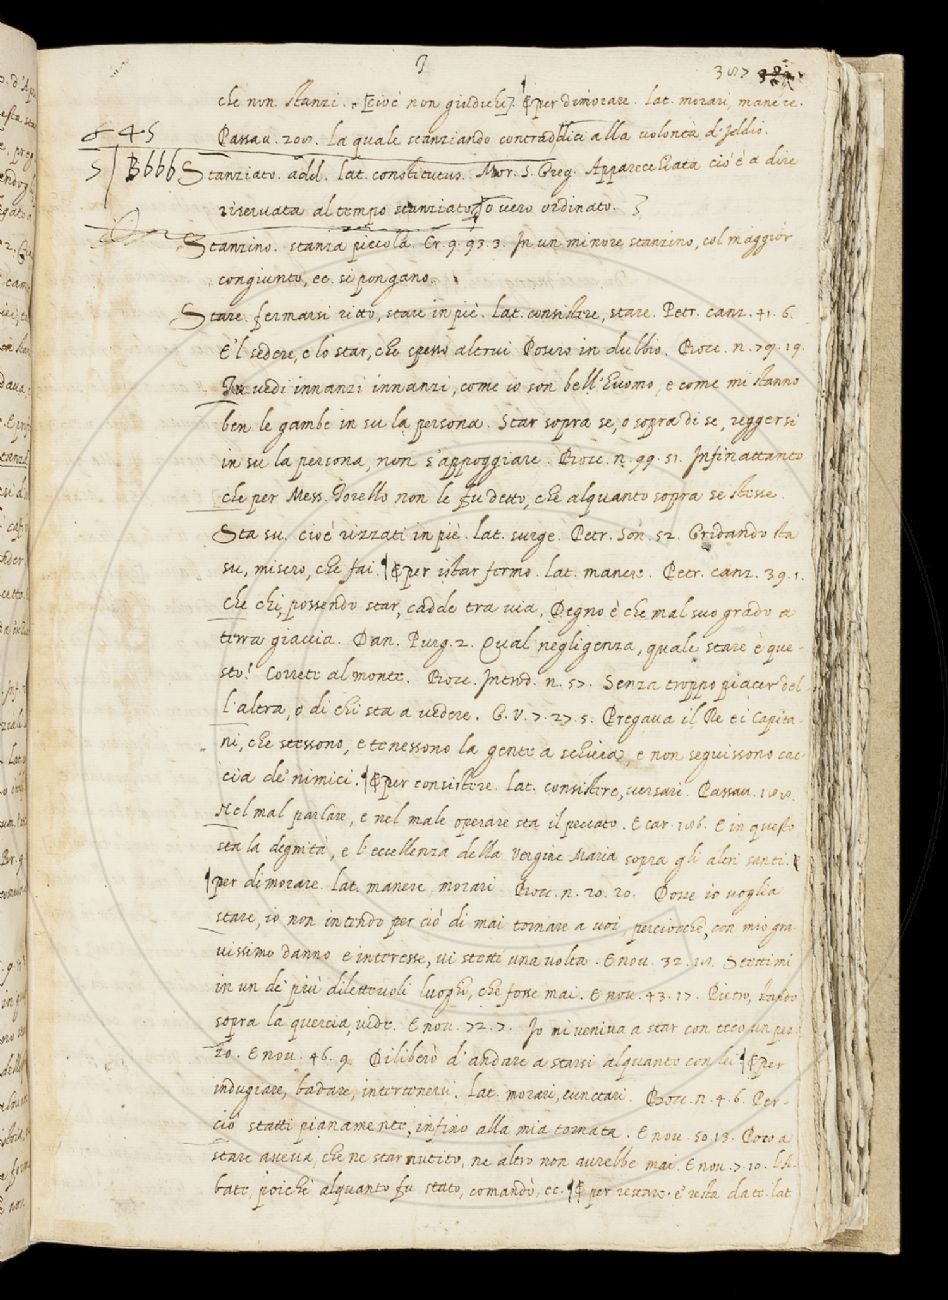 387
che non stanzi. [cioè non giudichi]. ¶ E per dimorare. lat. morari, manere.
Passau. 200. la quale stanziando contraddica alla volontà d'Iddio.
& 45
5 | Bbbb
Stanziato. add. lat. constitutus. Mor. S. Greg. Apparecchiata cioè a dire
riservata al tempo stanziato, o vero ordinato.
Stanzino. stanza piccola. Cr. 9. 93. 3. In un minore stanzino, col maggior
congiunto, ec. si pongano.
Stare. fermarsi ritto, stare in piè. lat. consistere, stare. Petr. canz. 41. 6.
E 'l sedere, e lo star, che spesso altrui Posero in dubbio. Bocc. n. 79. 19.
Tu vedi innanzi innanzi, come io son bell'huomo, e come mi stanno
ben le gambe in su la persona. Star sopra se, o sopra di se, reggersi
in su la persona, non s'appoggiare. Bocc. n. 99. 51. Infinattanto
che per Mess. Torello non le fu detto, che alquanto sopra se stesse.
Sta su, cioè rizzati in piè. lat. surge. Petr. Son. 52. Gridando sta
su, misero, che fai. ¶ E per istar fermo. lat. manere. Petr. canz. 39. 1.
Che chi, possendo star, cadde tra via, Degno è che mal suo grado a
terra giaccia. Dan. Purg. 2. Qual negligenza, quale stare è que-
sto! Correte al monte. Bocc. Introd. n. 57. Senza troppo piacer del
l'altra, o di chi sta a vedere. G. V. 7. 27. 5. Pregava il Re e i Capita-
ni, che stessono, e tenessono la gente a schiera, e non seguissono cac
cia de' nimici. ¶ E per consistere. lat. consistere, versari. Passau. 188.
Nel mal parlare, e nel male operare sta il peccato. E car. 186. E in questo
sta la degnità, e l'eccellenza della Vergine Maria sopra gli altri santi.
¶ per dimorare. lat. manere, morari. Bocc. n. 20. 20. Dove io voglia
stare, io non intendo per ciò di mai tornare a voi, perciocchè, con mio gra
vissimo danno e interesse, vi stetti una volta. E nov. 32. 18. Stettimi
in un de' più dilettevoli luoghi, che fosse mai. E nov. 43. 17. Pietro, stando
sopra la quercia, vide. E nov. 72. 7. Io ni veniva a star con teco un pez
zo. E nov. 46. 9. Diliberò d'andare a starsi alquanto con lei ¶ E per
indugiare, badare, intertenersi. lat. morari, cunctari. Bocc. n. 4. 6. Per-
ciò statti pianamente, infino alla mia tornata. E nov. 50. 13. Poco a
stare aveva, che ne star nutito, ne altro non avrebbe mai. E nov. 7. 10. L'A-
bate, poichè alquanto fu stato, comandò, ec. ¶ E per restare. e resta da te. lat